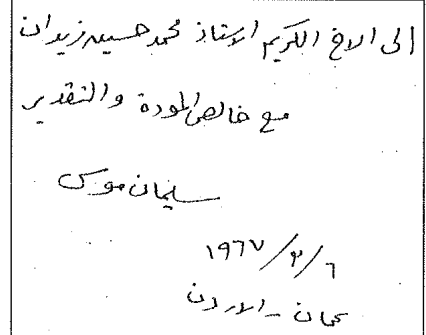 الى الاخ الكريم الاستاذ محمد حسين زيدان
مع خالص المودة والتقدير
سليمان موسى
١٩٦٧/٣/٦
عمان - الاردن